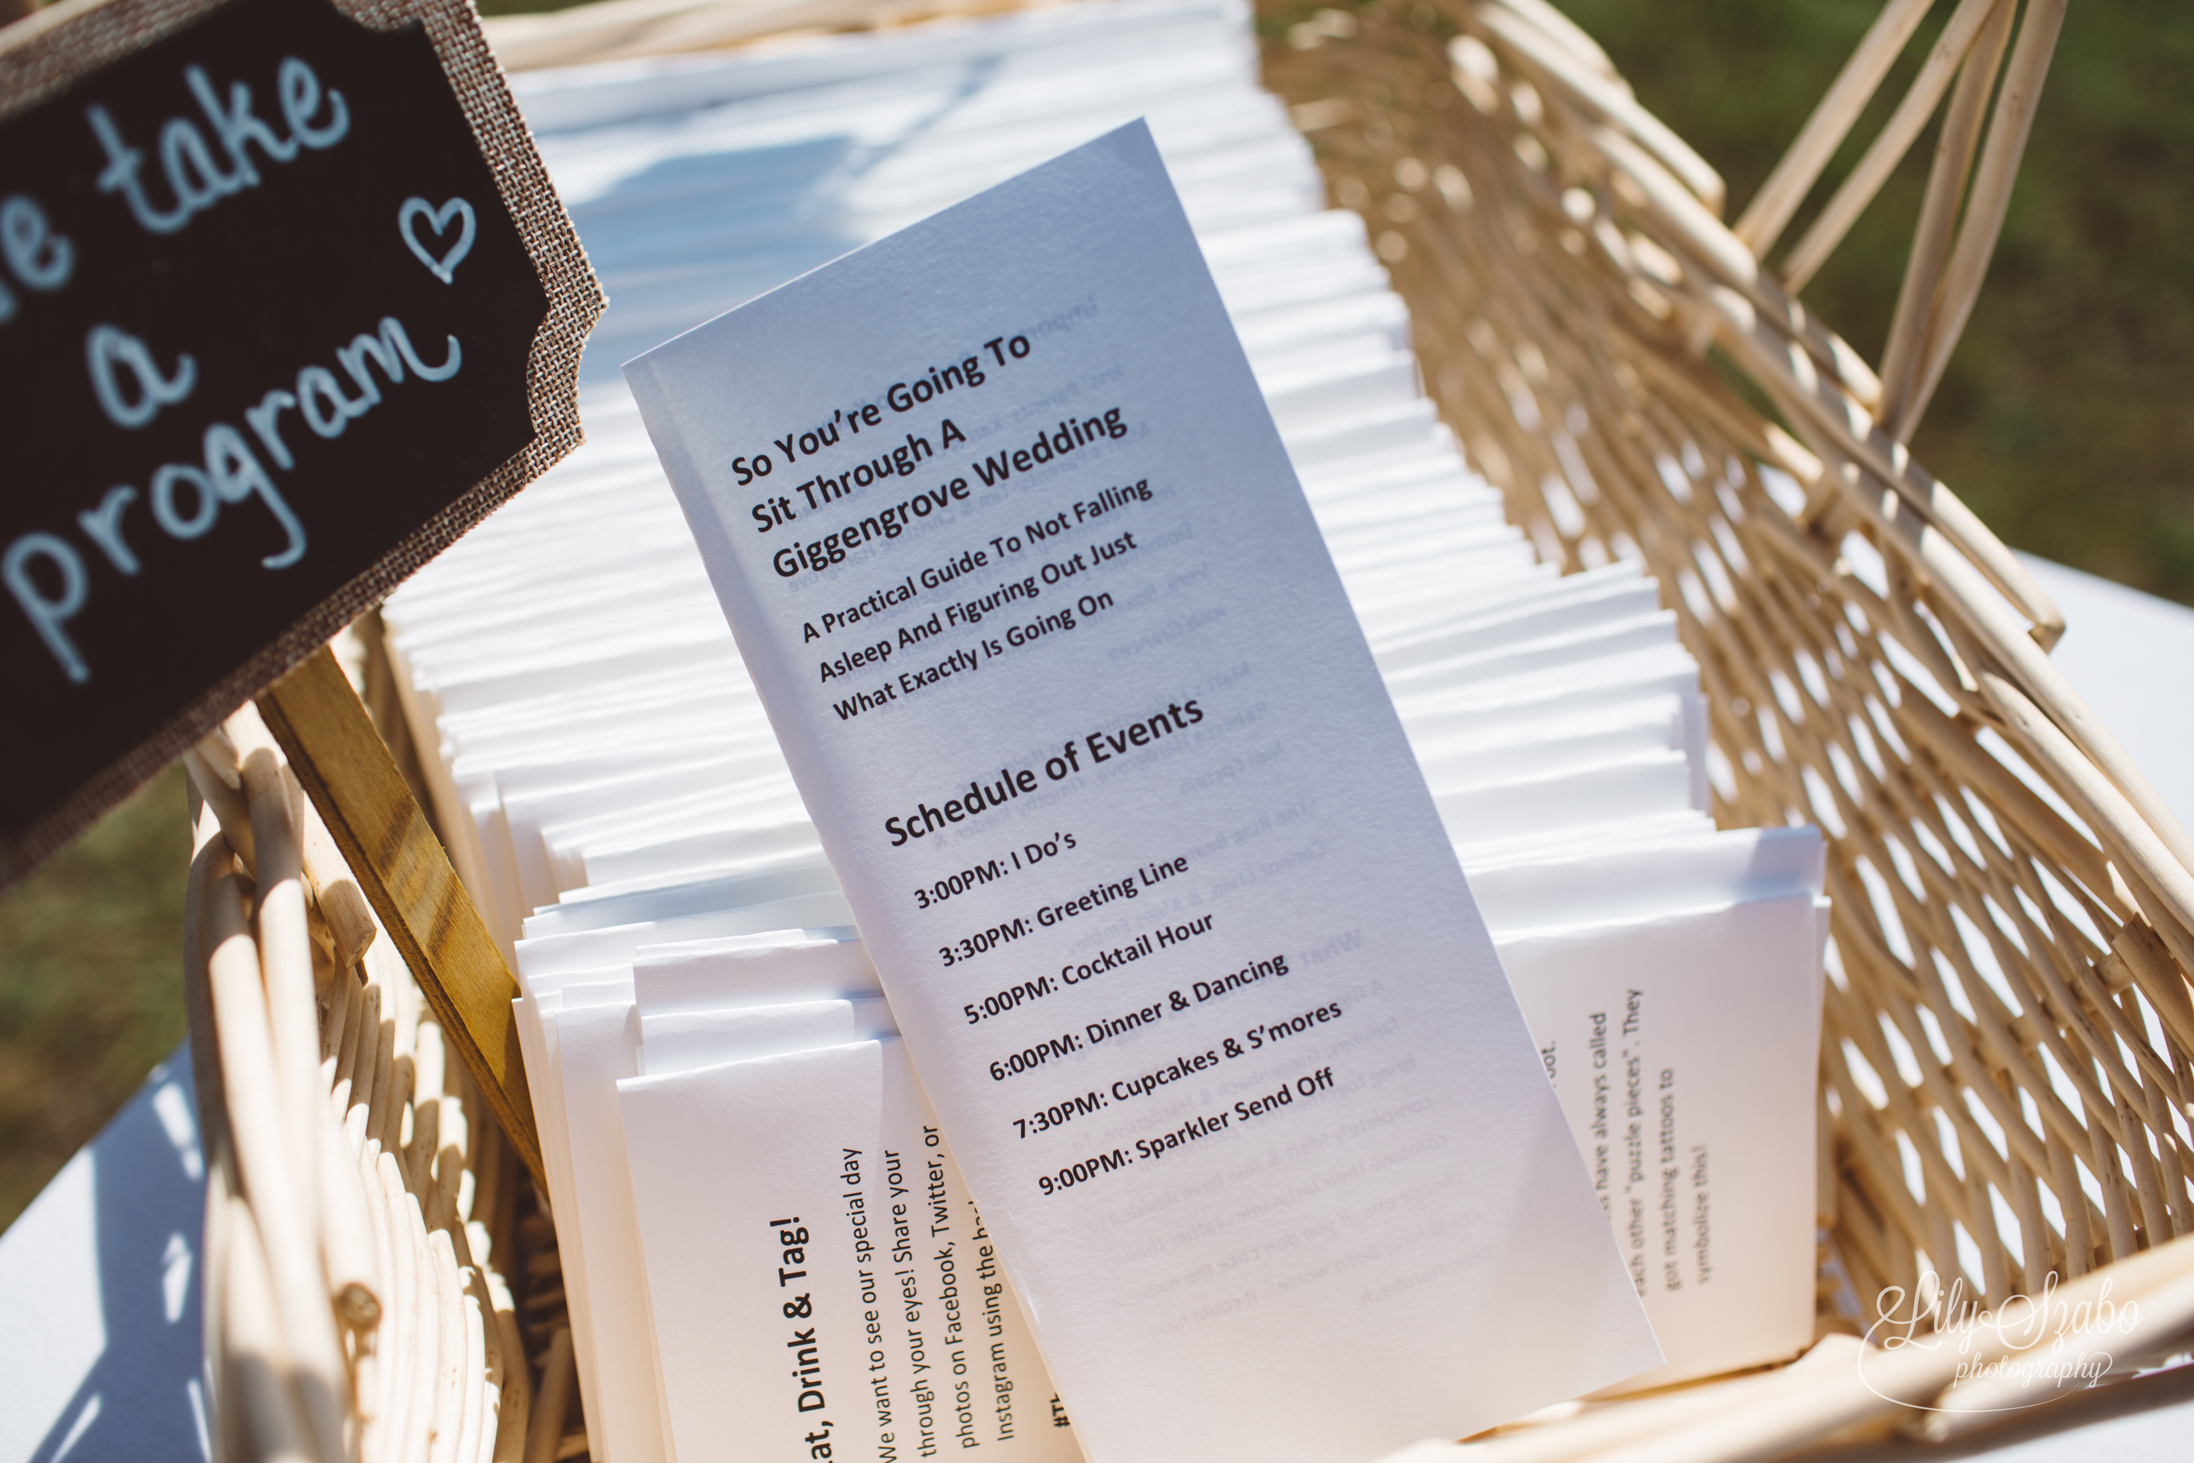 take
a
program
So You're Going To
Sit Through A
Giggengrove Wedding
A Practical Guide To Not Falling
Asleep And Figuring Out Just
What Exactly Is Going On
Schedule of Events
3:00PM: I Do's
3:30PM: Greeting Line
5:00PM: Cocktail Hour
6:00PM: Dinner & Dancing
7:30PM: Cupcakes & S'mores
9:00PM: Sparkler Send Off
Drink & Tag!
We want to see our special day
through your eyes! Share your
photos on Facebook, Twitter, or
Instagram using the
have always called
each other "puzzle pieces". They
got matching tattoos to
symbolize this!
Lily Szabo
photography